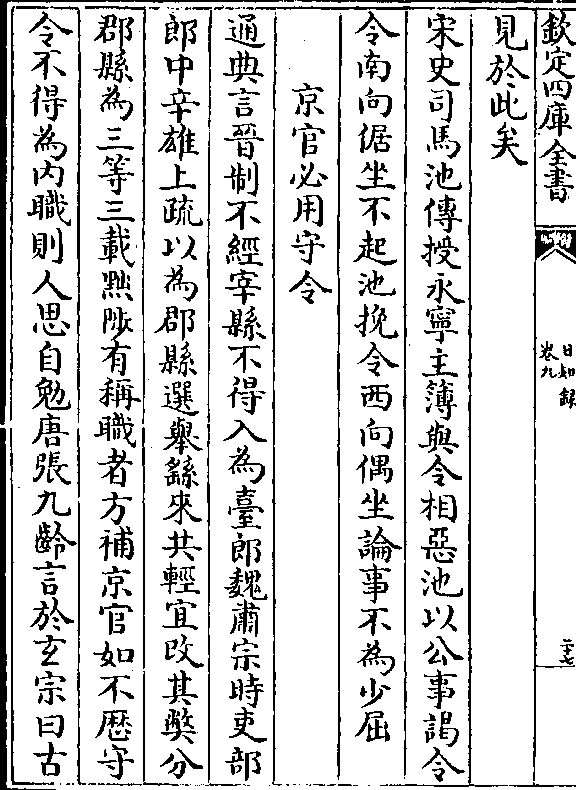 欽定四庫全書
日知録
卷九
二十七
見於此矣
宋史司馬池傳授永寧主簿與令相惡池以公事謁令
令南向倨坐不起池挽令西向偶坐論事不為少屈
京官必用守令
通典言晉制不經宰縣不得入為臺郎魏肅宗時吏部
郎中辛雄上疏以為郡縣選舉繇來共輕宜改其弊分
郡縣為三等三載黜陟有稱職者方補京官如不歷守
令不得為内職則人思自勉唐張九齡言於玄宗曰古